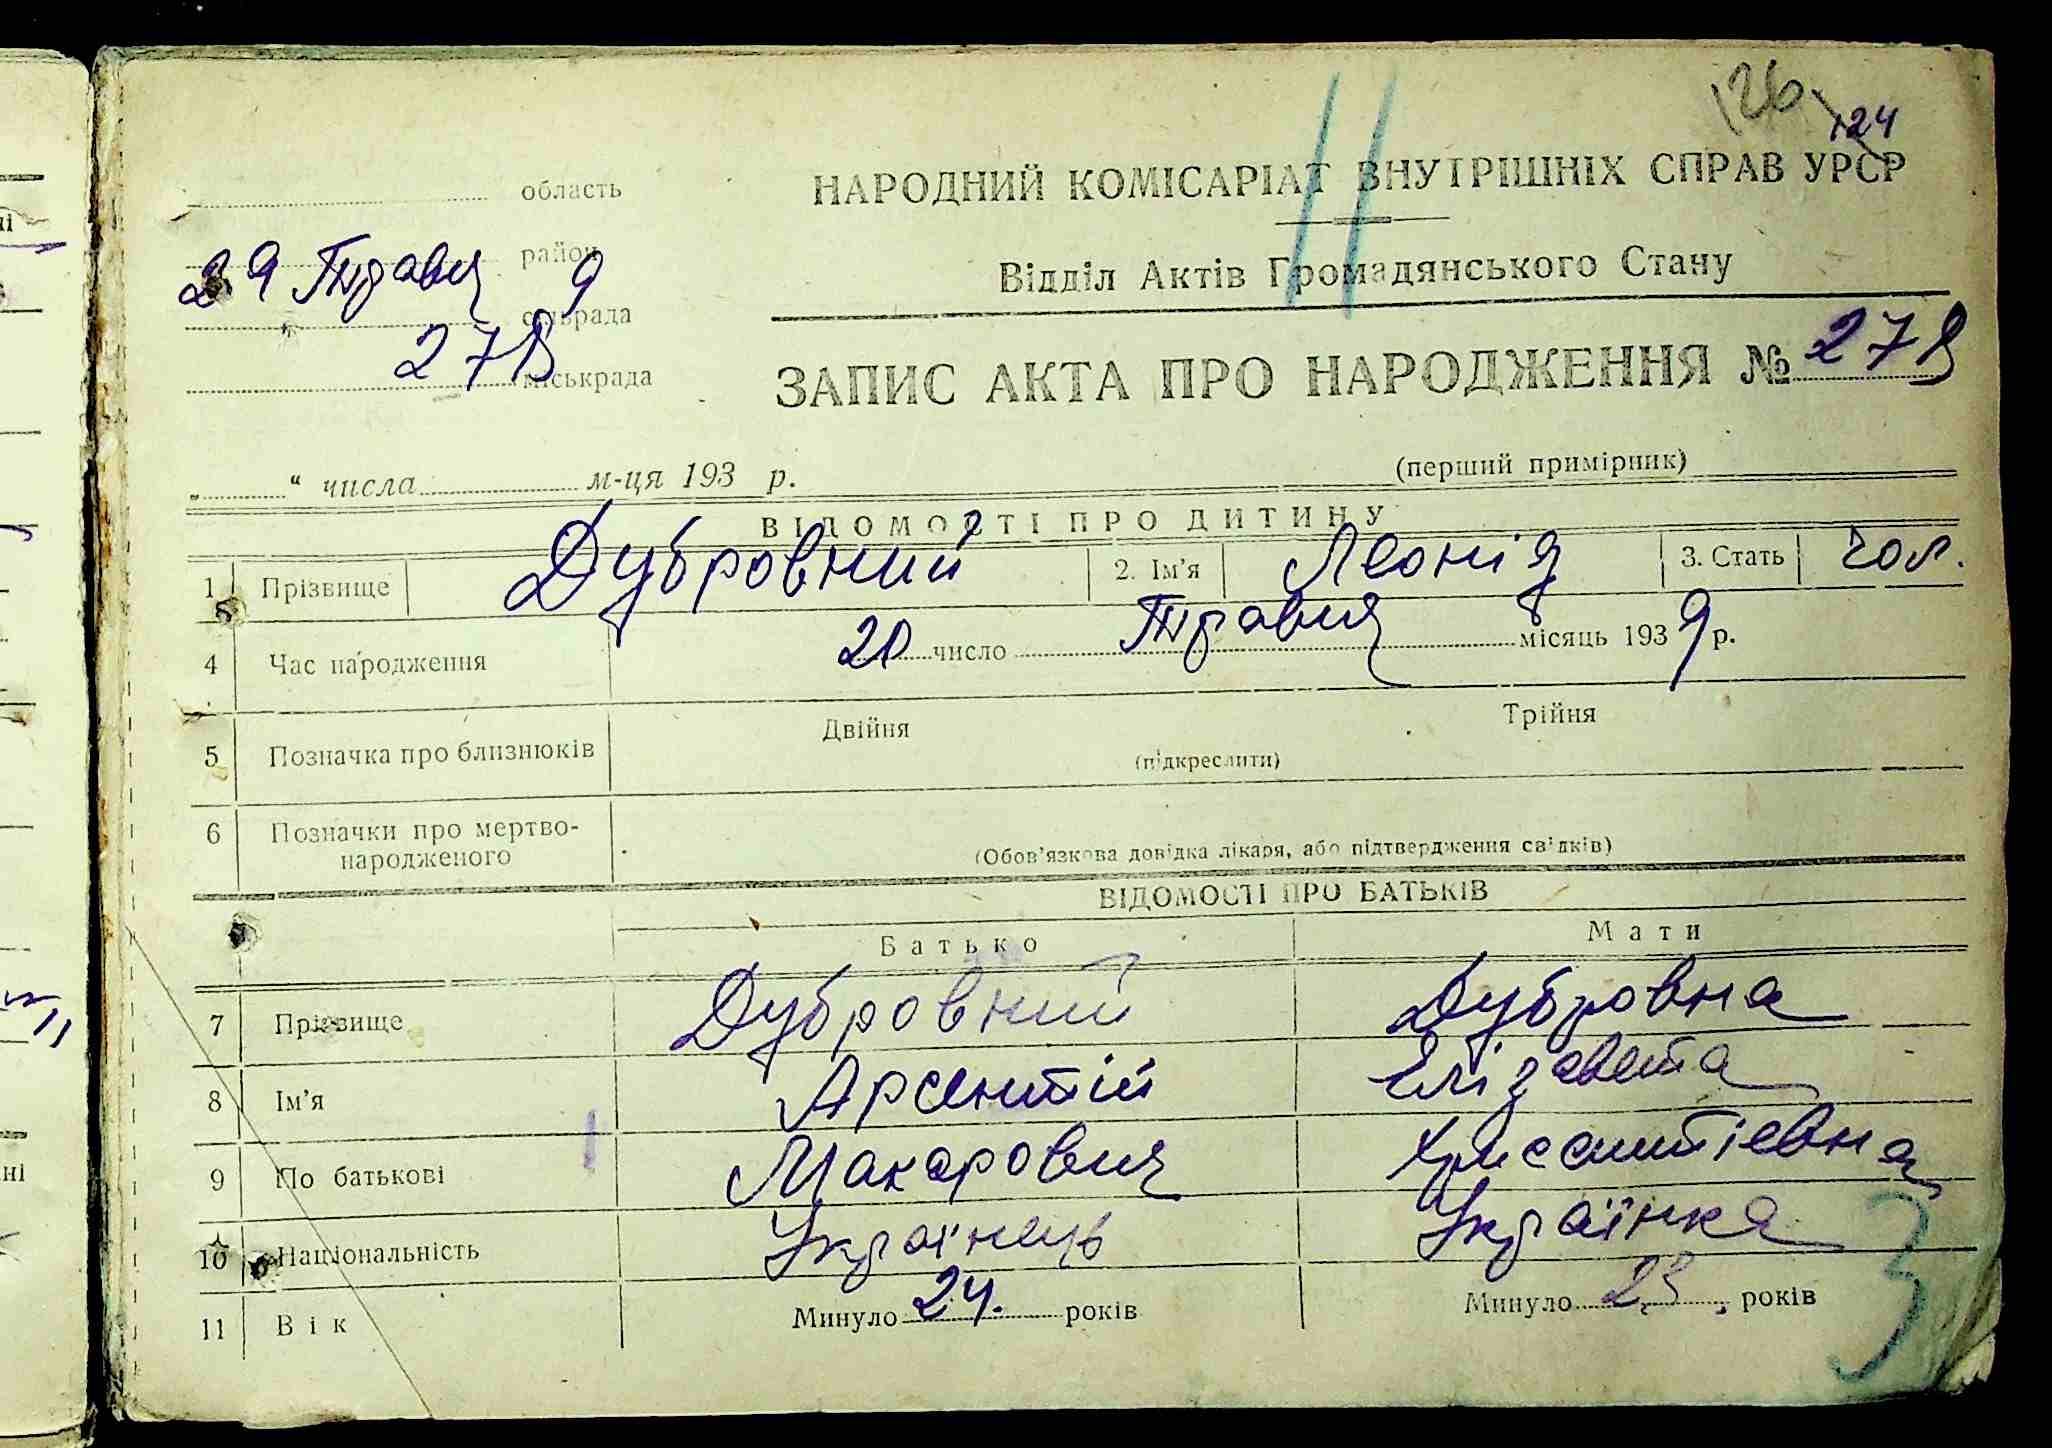 126
124
область
НАРОДНИЙ КОМІСАРІАТ ВНУТРІШНІХ СПРАВ УРСР
район
29 Травня 9
Відділ Актів Громадянського Стану
сільрада
278
міськрада
ЗАПИС АКТА ПРО НАРОДЖЕННЯ № 278
„ “ числа м-ця 193 р.
(перший примірник)
ВІДОМОСТІ ПРО ДИТИНУ
1 Прізвище Дубровний 2. Ім'я Леонід 3. Стать чол.
4 Час народження 20 число Травня місяць 1939 р.
5 Позначка про близнюків Двійня Трійня
(підкреслити)
6 Позначки про мертво-
народженого
(Обов'язкова довідка лікаря, або підтвердження свідків)
ВІДОМОСТІ ПРО БАТЬКІВ
Батько Мати
7 Прізвище Дубровний Дубровна
8 Ім'я Арсентій Елізавета
9 По батькові Макарович
10 Національність Українець Українка
11 Вік Минуло 24. років Минуло 23 років
3